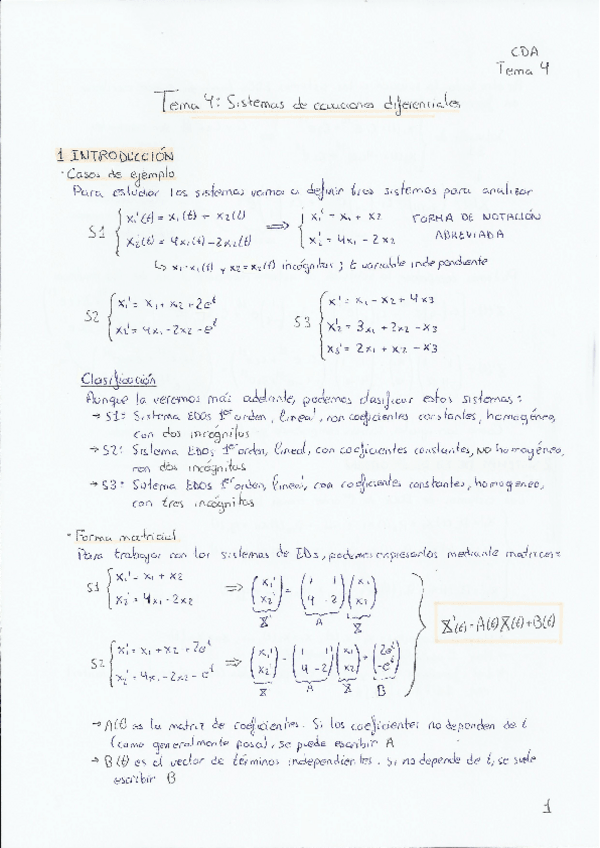 CDA
Tema 4
Tema 4: Sistemas de ecuaciones diferenciales
1 INTRODUCCIÓN
· Casos de ejemplo
Para estudiar los sistemas vamos a definir tres sistemas para analizar
S1 { x₁'(t) = x₁(t) - x₂(t) ⟹ { x₁' = x₁ + x₂ FORMA DE NOTACIÓN
x₂'(t) = 4x₁(t) - 2x₂(t) x₂' = 4x₁ - 2x₂ ABREVIADA
↳ x₁ = x₁(t) y x₂ = x₂(t) incógnitas ; t variable independiente
S2 { x₁' = x₁ + x₂ + 2eᵗ S3 { x' = x₁ - x₂ + 4x₃
x₂' = 4x₁ - 2x₂ - eᵗ x₂' = 3x₁ + 2x₂ - x₃
x₃' = 2x₁ + x₂ - x₃
Clasificación
Aunque la veremos más adelante, podemos clasificar estos sistemas:
→ S1: Sistema EDOs 1er orden, lineal, con coeficientes constantes, homogéneo,
con dos incógnitas
→ S2: Sistema EDOs 1er orden, lineal, con coeficientes constantes, no homogéneo,
con dos incógnitas
→ S3: Sistema EDOs 1er orden, lineal, con coeficientes constantes, homogeneo,
con tres incógnitas
· Forma matricial
Para trabajar con los sistemas de EDs, podemos expresarlos mediante matrices:
S1 { x₁' = x₁ + x₂ ⟹ (x₁') = (1 1) (x₁)
x₂' = 4x₁ - 2x₂ (x₂') (4 -2) (x₂)
X' A X
X'(t) = A(t)X(t) + B(t)
S2 { x₁' = x₁ + x₂ + 2eᵗ ⟹ (x₁') = (1 1) (x₁) + (2eᵗ)
x₂' = 4x₁ - 2x₂ - eᵗ (x₂) (4 -2) (x₂) (-eᵗ)
X A X B
→ A(t) es la matriz de coeficientes. Si los coeficientes no dependen de t
(como generalmente pasa), se puede escribir A
→ B(t) es el vector de términos independientes. Si no depende de t, se suele
escribir B
1